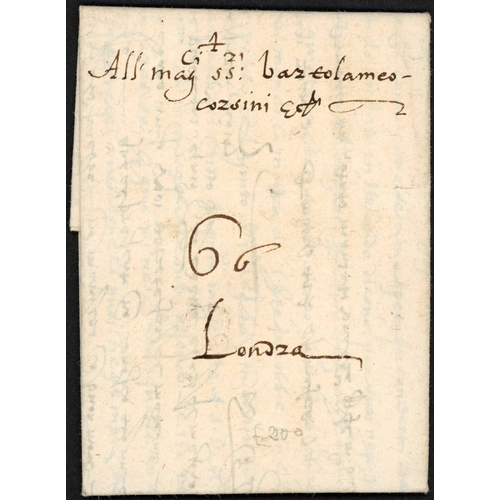 All' mag^ci ss^ri: bartolameo
corsini &
66
Londra
£200